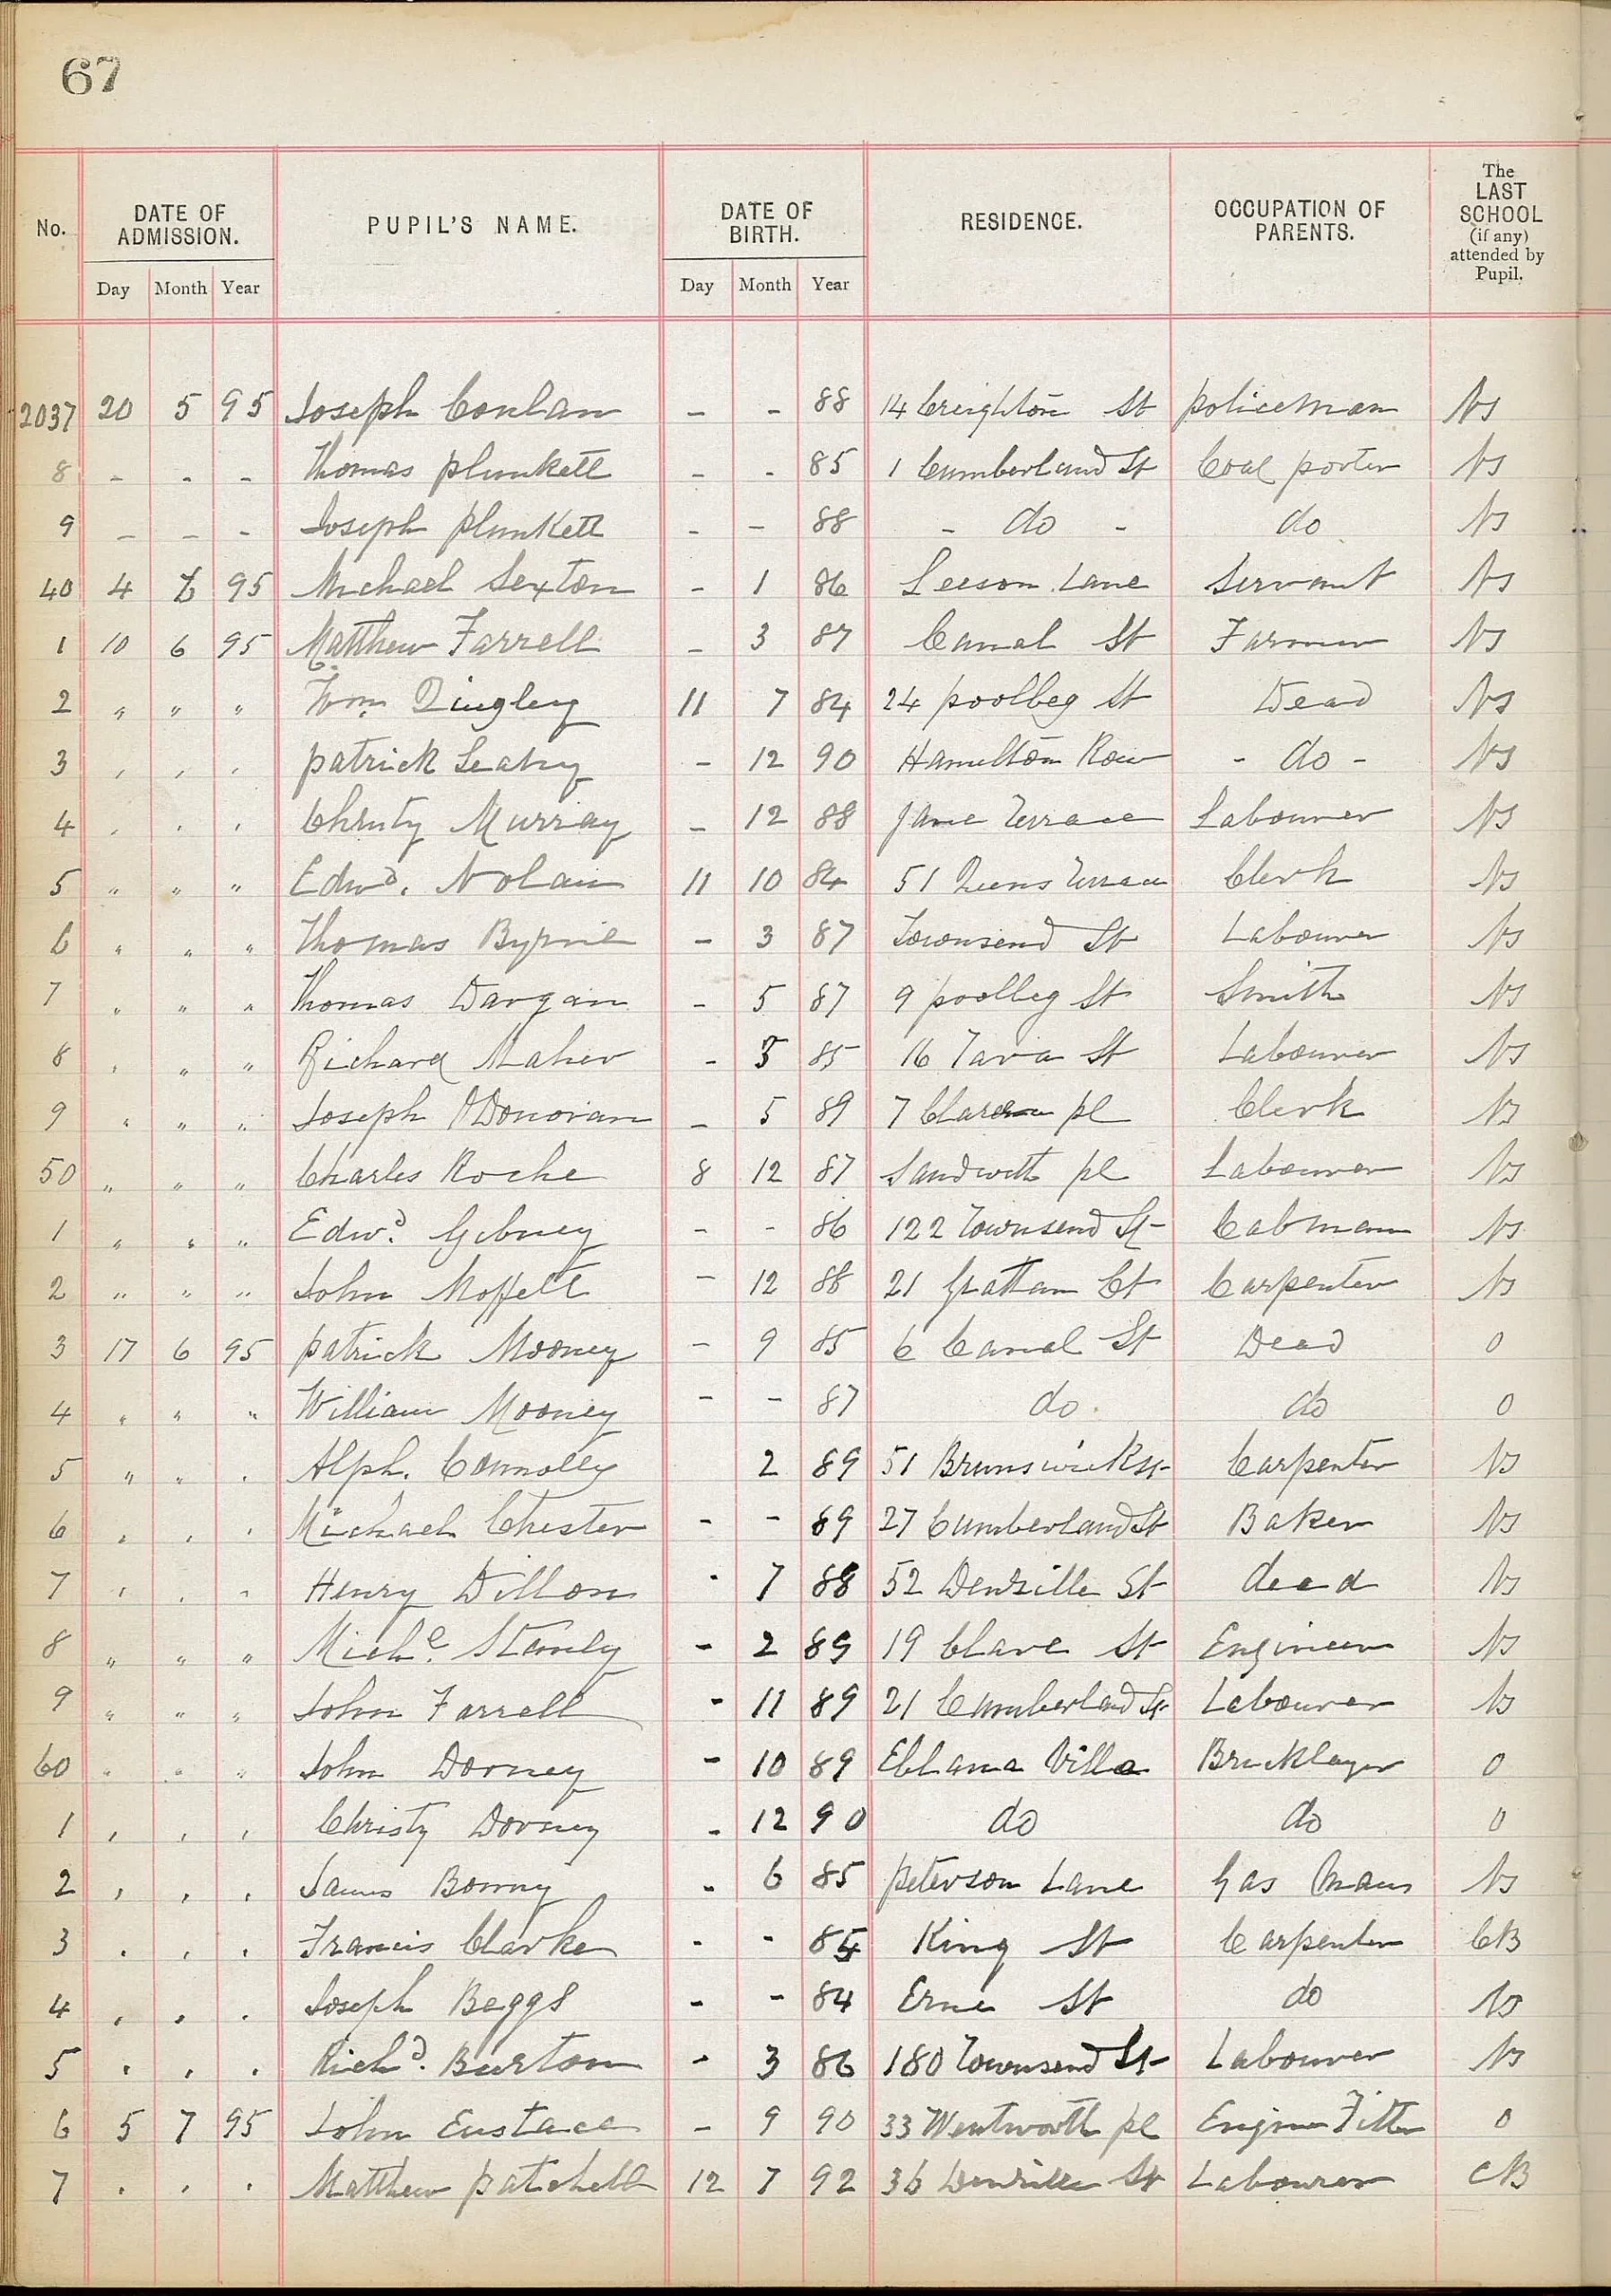 67
No. DATE OF ADMISSION. PUPIL'S NAME. DATE OF BIRTH. RESIDENCE. OCCUPATION OF PARENTS. The LAST SCHOOL (if any) attended by Pupil.
Day Month Year Day Month Year
2037 20 5 95 Joseph Conlan - - 88 14 Creighton St policeman NS
8 - - - Thomas plunkett - - 85 1 Cumberland St Coal porter NS
9 - - - Joseph plunkett - - 88 - do - do NS
40 4 6 95 Michael Sexton - 1 86 Leeson Lane Servant NS
1 10 6 95 Matthew Farrell - 3 87 Canal St Farmer NS
2 " " " Wm Quigley 11 7 84 24 poolbeg St Dead NS
3 , , , patrick Leahy - 12 90 Hamilton Row - do - NS
4 , , , Christy Murray - 12 88 Jane Terrace Labourer NS
5 " " " Edwd. Nolan 11 10 84 51 Queens Terrace Clerk NS
6 " " " Thomas Byrne - 3 87 Townsend St Labourer NS
7 " " " Thomas Dargan - 5 87 9 poolbeg St Smith NS
8 , " " Richard Maher - 5 85 16 Tara St Labourer NS
9 " " " Joseph O'Donovan - 5 89 7 Clarence pl Clerk NS
50 " " " Charles Roche 8 12 87 Sandwith pl Labourer NS
1 " " " Edwd. Gibney - - 86 122 Townsend St Cabman NS
2 " " " John Moffett - 12 88 21 Grattan Ct Carpenter NS
3 17 6 95 patrick Mooney - 9 85 6 Canal St Dead 0
4 " " " William Mooney - - 87 do do 0
5 " " , Alph. Connolly 2 89 51 Brunswick St Carpenter NS
6 , , , Michael Chester - - 89 27 Cumberland St Baker NS
7 , , , Henry Dillon - 7 88 52 Denzille St dead NS
8 " " " Michl. Stanly - 2 89 19 Clare St Engineer NS
9 " " " John Farrell - 11 89 21 Cumberland St Labourer NS
60 " " " John Dorney - 10 89 Eblana Villa Bricklayer 0
1 , , , Christy Dorney - 12 90 do do 0
2 , , , James - 6 85 peterson Lane Gas Man NS
3 , , , Francis Clarke - - 85 King St Carpenter CB
4 , , , Joseph Beggs - - 84 Erne St do NS
5 , , , Richd. Burton - 3 86 180 Townsend St Labourer NS
6 5 7 95 John Eustace - 9 90 33 Wentworth pl Engine Fitter 0
7 , , , Matthew patchell 12 7 92 36 Denzille St Labourer CB